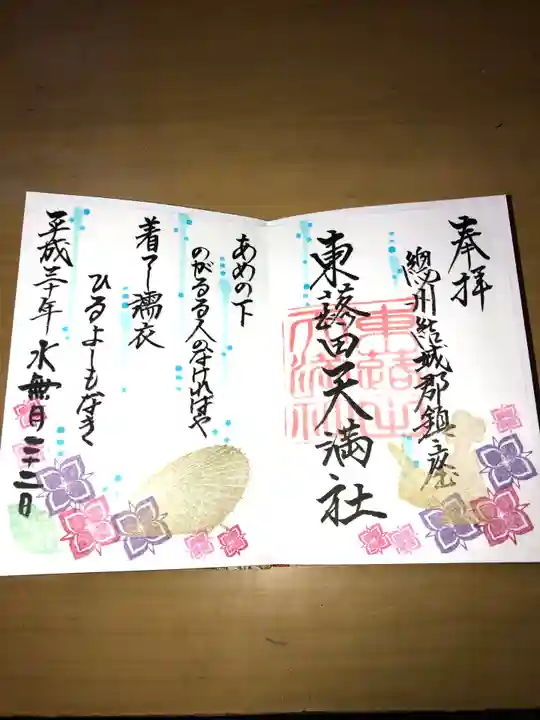 奉拝
總州結城郡鎮座
東蕗田天満社
東蕗田天満社
あめの下
のがるる人のなければや
着てし濡衣
ひるよしもなき
平成三十年水無月二十二日